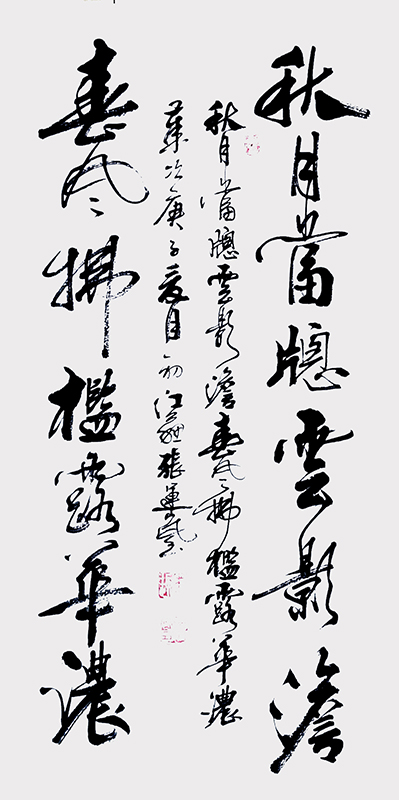 秋月當牕雲影澹
秋月當牕雲影澹春風拂檻露華濃
歲次庚子夏月江蘇張
春風拂檻露華濃